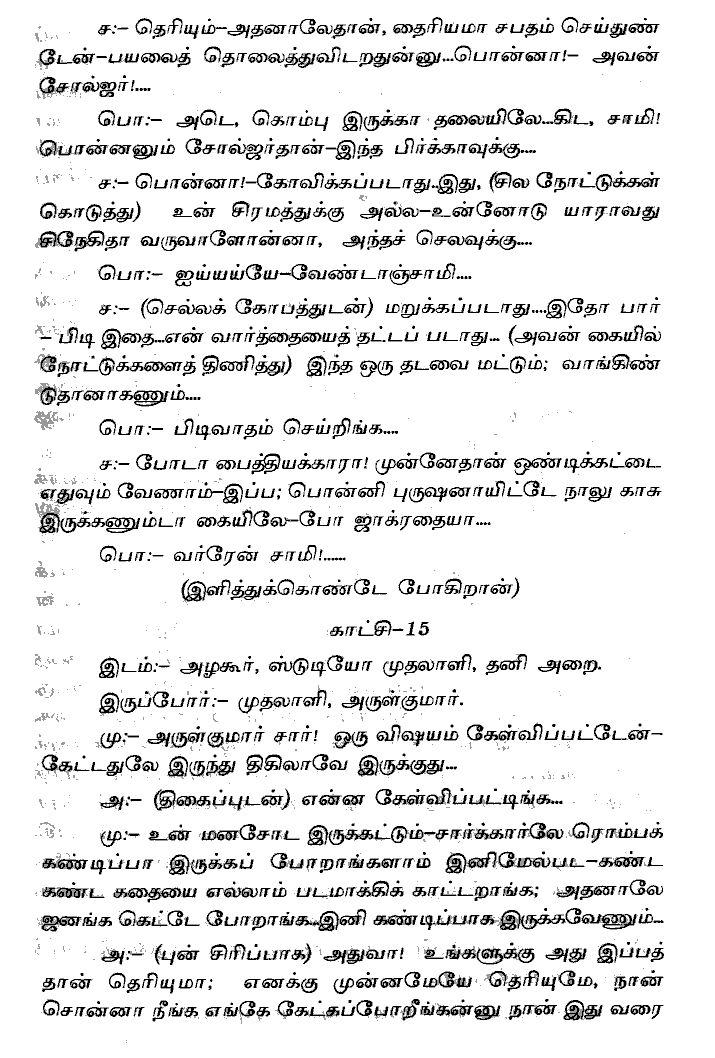 ச:– தெரியும்–அதனாலேதான், தைரியமா சபதம் செய்துண்
டேன்–பயலைத் தொலைத்துவிடறதுன்னு...பொன்னா!– அவன்
சோல்ஜர்!....
பொ:– அடெ, கொம்பு இருக்கா தலையிலே...கிட, சாமி!
பொன்னனும் சோல்ஜர்தான்–இந்த பிர்க்காவுக்கு....
ச:– பொன்னா!–கோவிக்கப்படாது..இது, (சில நோட்டுக்கள்
கொடுத்து) உன் சிரமத்துக்கு அல்ல–உன்னோடு யாராவது
சிநேகிதா வருவாளோன்னா, அந்தச் செலவுக்கு....
பொ:– ஐய்யய்யே–வேண்டாஞ்சாமி....
ச:– (செல்லக் கோபத்துடன்) மறுக்கப்படாது....இதோ பார்
– பிடி இதை...என் வார்த்தையைத் தட்டப் படாது... (அவன் கையில்
நோட்டுக்களைத் திணித்து) இந்த ஒரு தடவை மட்டும்; வாங்கிண்
டுதானாகணும்....
பொ:– பிடிவாதம் செய்றிங்க....
ச:– போடா பைத்தியக்காரா! முன்னேதான் ஒண்டிக்கட்டை
எதுவும் வேணாம்–இப்ப; பொன்னி புருஷனாயிட்டே நாலு காசு
இருக்கணும்டா கையிலே–போ ஜாக்ரதையா....
பொ:– வர்ரேன் சாமி!......
(இளித்துக்கொண்டே போகிறான்)
காட்சி–15
இடம்:– அழகூர், ஸ்டுடியோ முதலாளி, தனி அறை.
இருப்போர்:– முதலாளி, அருள்குமார்.
மு:– அருள்குமார் சார்! ஒரு விஷயம் கேள்விப்பட்டேன்–
கேட்டதுலே இருந்து திகிலாவே இருக்குது...
அ:– (திகைப்புடன்) என்ன கேள்விப்பட்டிங்க...
மு:– உன் மனசோட இருக்கட்டும்–சார்க்கார்லே ரொம்பக்
கண்டிப்பா இருக்கப் போறாங்களாம் இனிமேல்பட–கண்ட
கண்ட கதையை எல்லாம் படமாக்கிக் காட்டறாங்க; அதனாலே
ஜனங்க கெட்டே போறாங்க...இனி கண்டிப்பாக இருக்கவேணும்...
அ:– (புன் சிரிப்பாக) அதுவா! உங்களுக்கு அது இப்பத்
தான் தெரியுமா; எனக்கு முன்னமேயே தெரியுமே, நான்
சொன்னா நீங்க எங்கே கேட்கப்போறீங்கன்னு நான் இது வரை